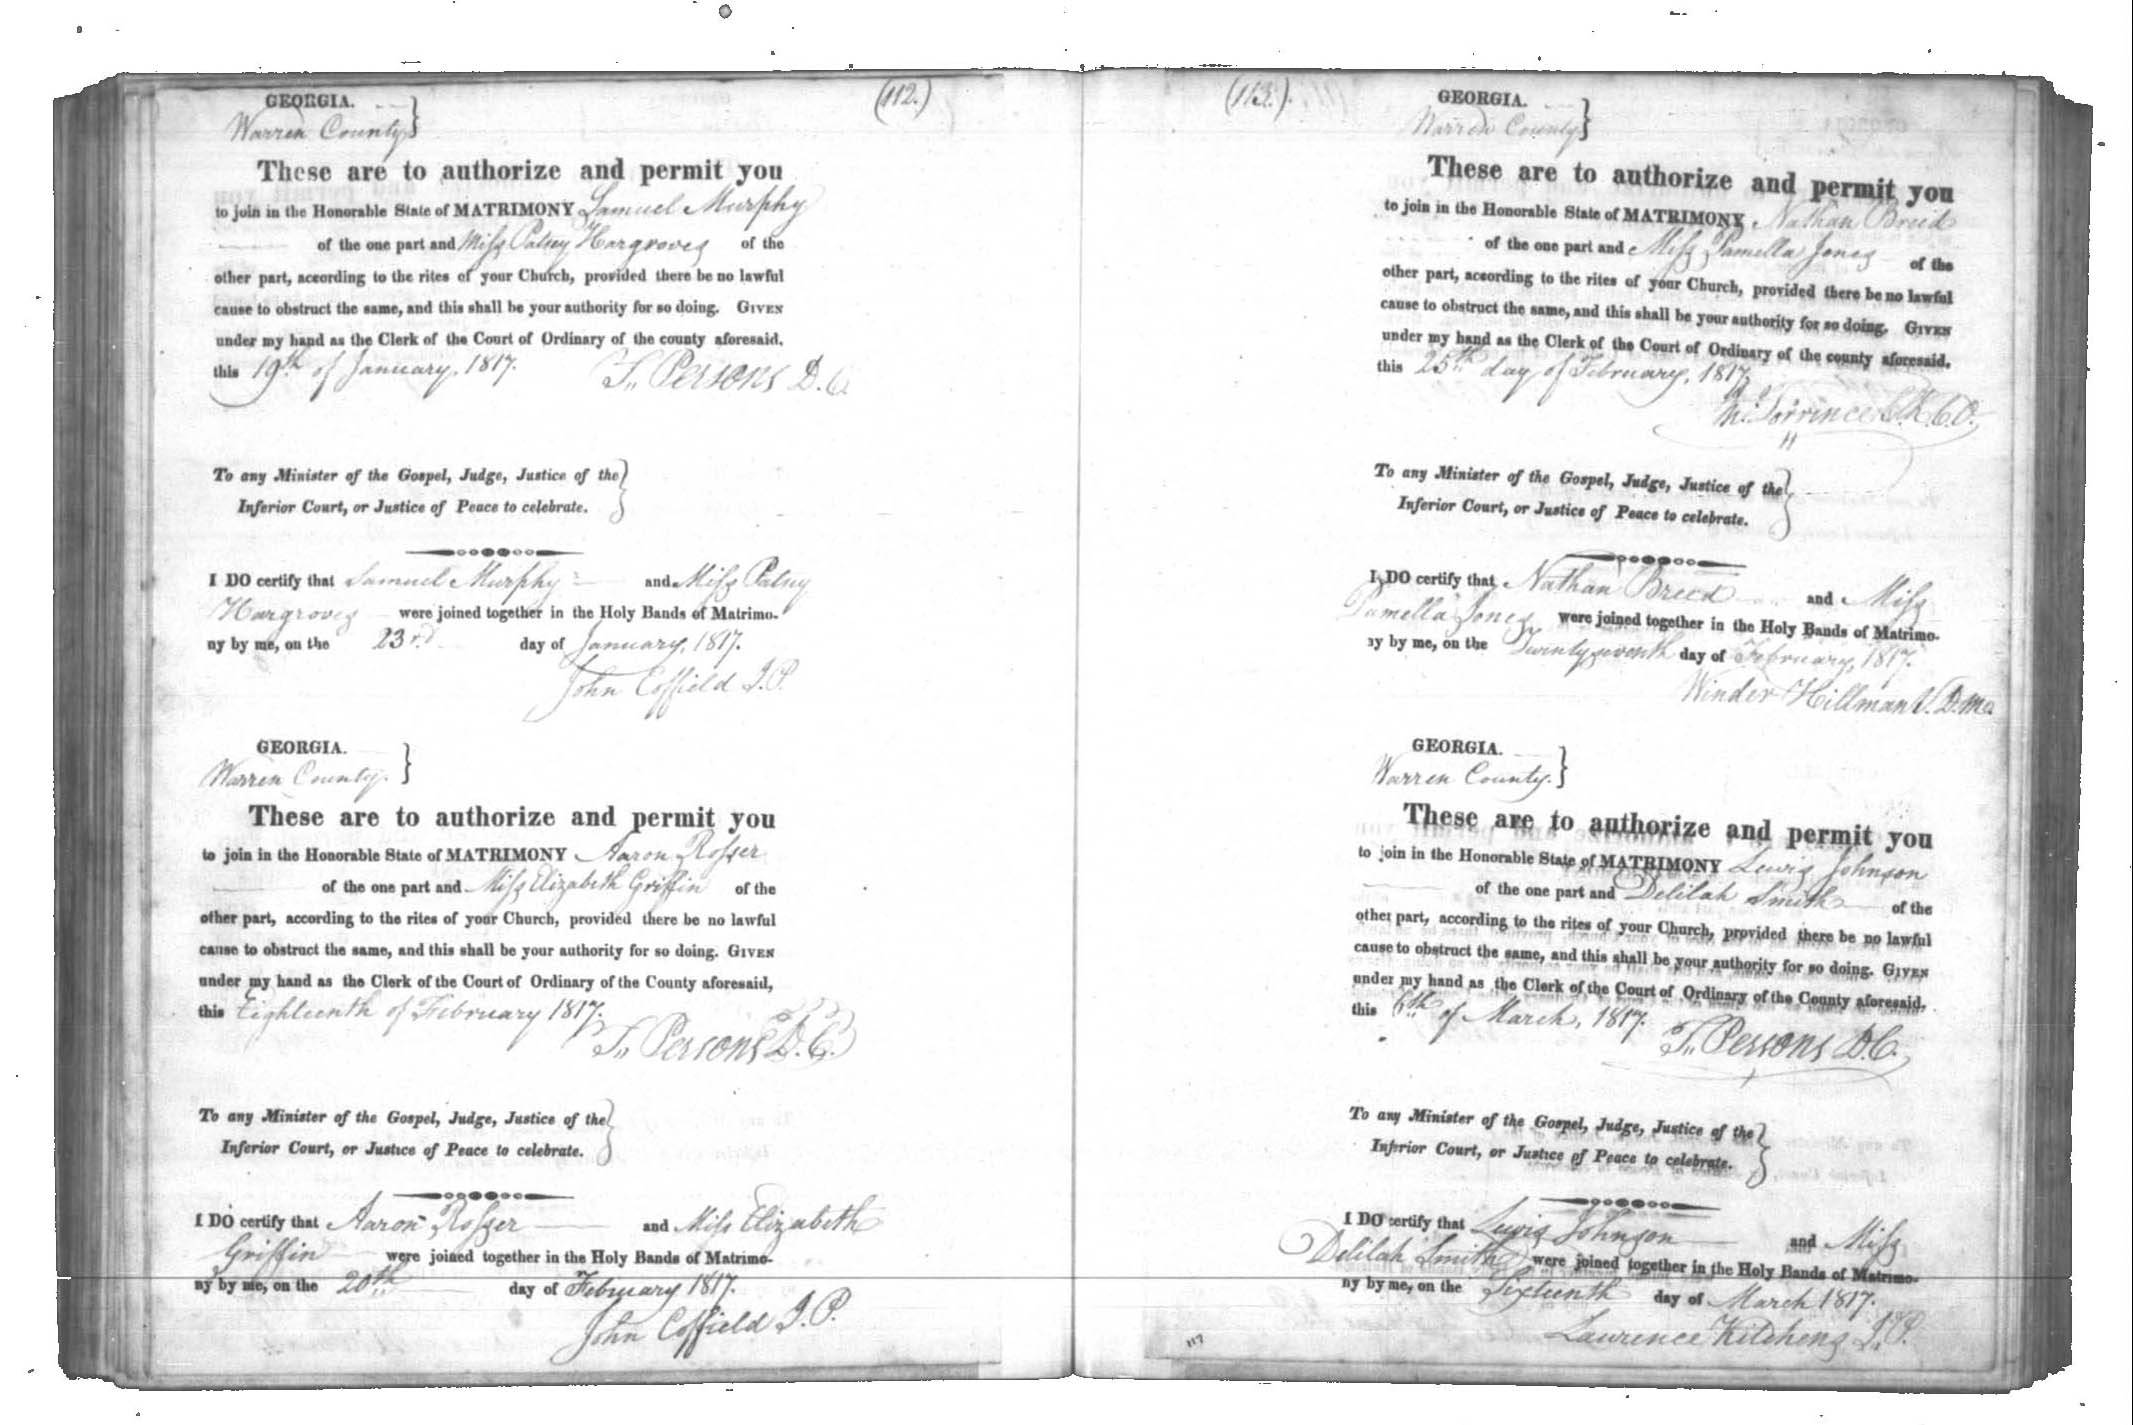 (112.)
GEORGIA.
Warren County }
These are to authorize and permit you
to join in the Honorable State of MATRIMONY Samuel Murphy
of the one part and Miss Patsey Hargroves of the
other part, according to the rites of your Church, provided there be no lawful
cause to obstruct the same, and this shall be your authority for so doing. GIVEN
under my hand as the Clerk of the Court of Ordinary of the county aforesaid,
this 19th of January, 1817. T,, Persons D. C
To any Minister of the Gospel, Judge, Justice of the }
Inferior Court, or Justice of Peace to celebrate.
I DO certify that Samuel Murphy and Miss Patsy
Hargroves were joined together in the Holy Bands of Matrimo-
ny by me, on the 23rd day of January, 1817.
John Coffield J.P.
GEORGIA.
Warren County. }
These are to authorize and permit you
to join in the Honorable State of MATRIMONY Aaron Rosser
of the one part and Miss Elizabeth Griffin of the
other part, according to the rites of your Church, provided there be no lawful
cause to obstruct the same, and this shall be your authority for so doing. GIVEN
under my hand as the Clerk of the Court of Ordinary of the County aforesaid,
this Eighteenth of February 1817. T,, Persons D. C.
To any Minister of the Gospel, Judge, Justice of the }
Inferior Court, or Justice of Peace to celebrate.
I DO certify that Aaron Rosser and Miss Elizabeth
Griffin were joined together in the Holy Bands of Matrimo-
ny by me, on the 20th day of February 1817.
John Coffield J.P.
(113.)
GEORGIA.
Warren County }
These are to authorize and permit you
to join in the Honorable State of MATRIMONY Nathan Breed
of the one part and Miss Pamella Jones of the
other part, according to the rites of your Church, provided there be no lawful
cause to obstruct the same, and this shall be your authority for so doing. GIVEN
under my hand as the Clerk of the Court of Ordinary of the county aforesaid,
this 25th day of February, 1817.
M. Torrence Clk. C.O.
To any Minister of the Gospel, Judge, Justice of the }
Inferior Court, or Justice of Peace to celebrate.
I DO certify that Nathan Breed and Miss
Pamella Jones were joined together in the Holy Bands of Matrimo-
ny by me, on the Twinty seventh day of February, 1817.
Winder Hillman V. D. M.
GEORGIA.
Warren County. }
These are to authorize and permit you
to join in the Honorable State of MATRIMONY Lewis Johnson
of the one part and Delilah Smith of the
other part, according to the rites of your Church, provided there be no lawful
cause to obstruct the same, and this shall be your authority for so doing. GIVEN
under my hand as the Clerk of the Court of Ordinary of the County aforesaid,
this 6th of March, 1817. T,, Persons D.C.
To any Minister of the Gospel, Judge, Justice of the }
Inferior Court, or Justice of Peace to celebrate.
I DO certify that Lewis Johnson and Miss
Delilah Smith were joined together in the Holy Bands of Matrimo-
ny by me, on the Sixteenth day of March 1817.
Laurence Kitchens J.P.
117